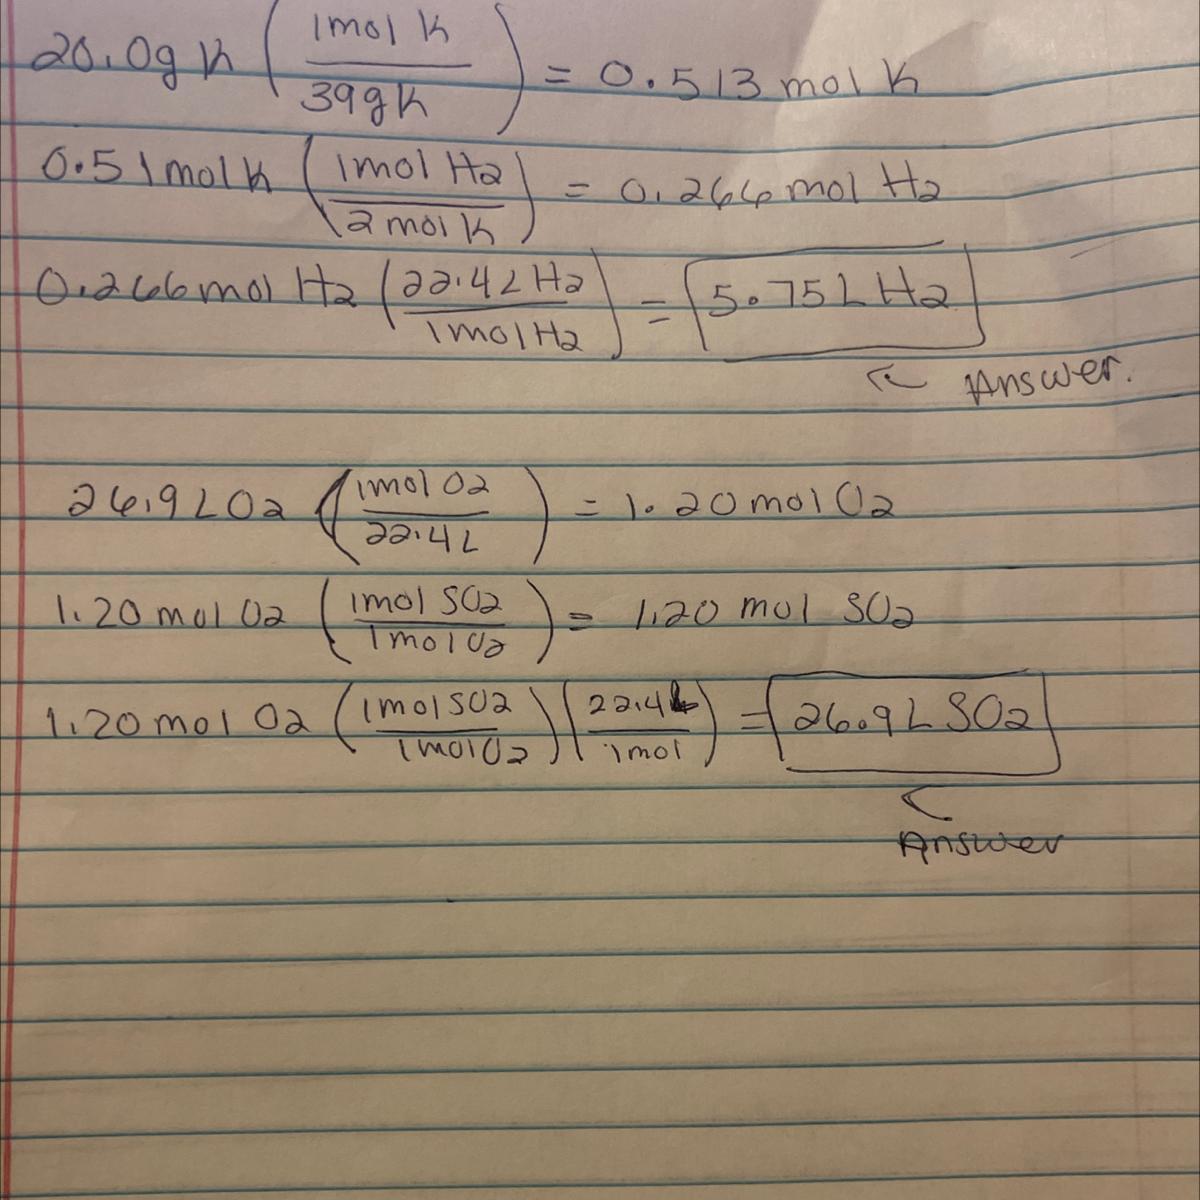 20.0g K (1mol K / 39g K) = 0.513 mol K
0.51 mol K (1mol H2 / 2 mol K) = 0.266 mol H2
0.266 mol H2 (22.4L H2 / 1mol H2) = 5.75L H2
← Answer.
26.9 L O2 (1mol O2 / 22.4L) = 1.20 mol O2
1.20 mol O2 (1mol SO2 / 1mol O2) = 1.20 mol SO2
1.20 mol O2 (1mol SO2 / 1mol O2)(22.4L / 1mol) = 26.9L SO2
Answer